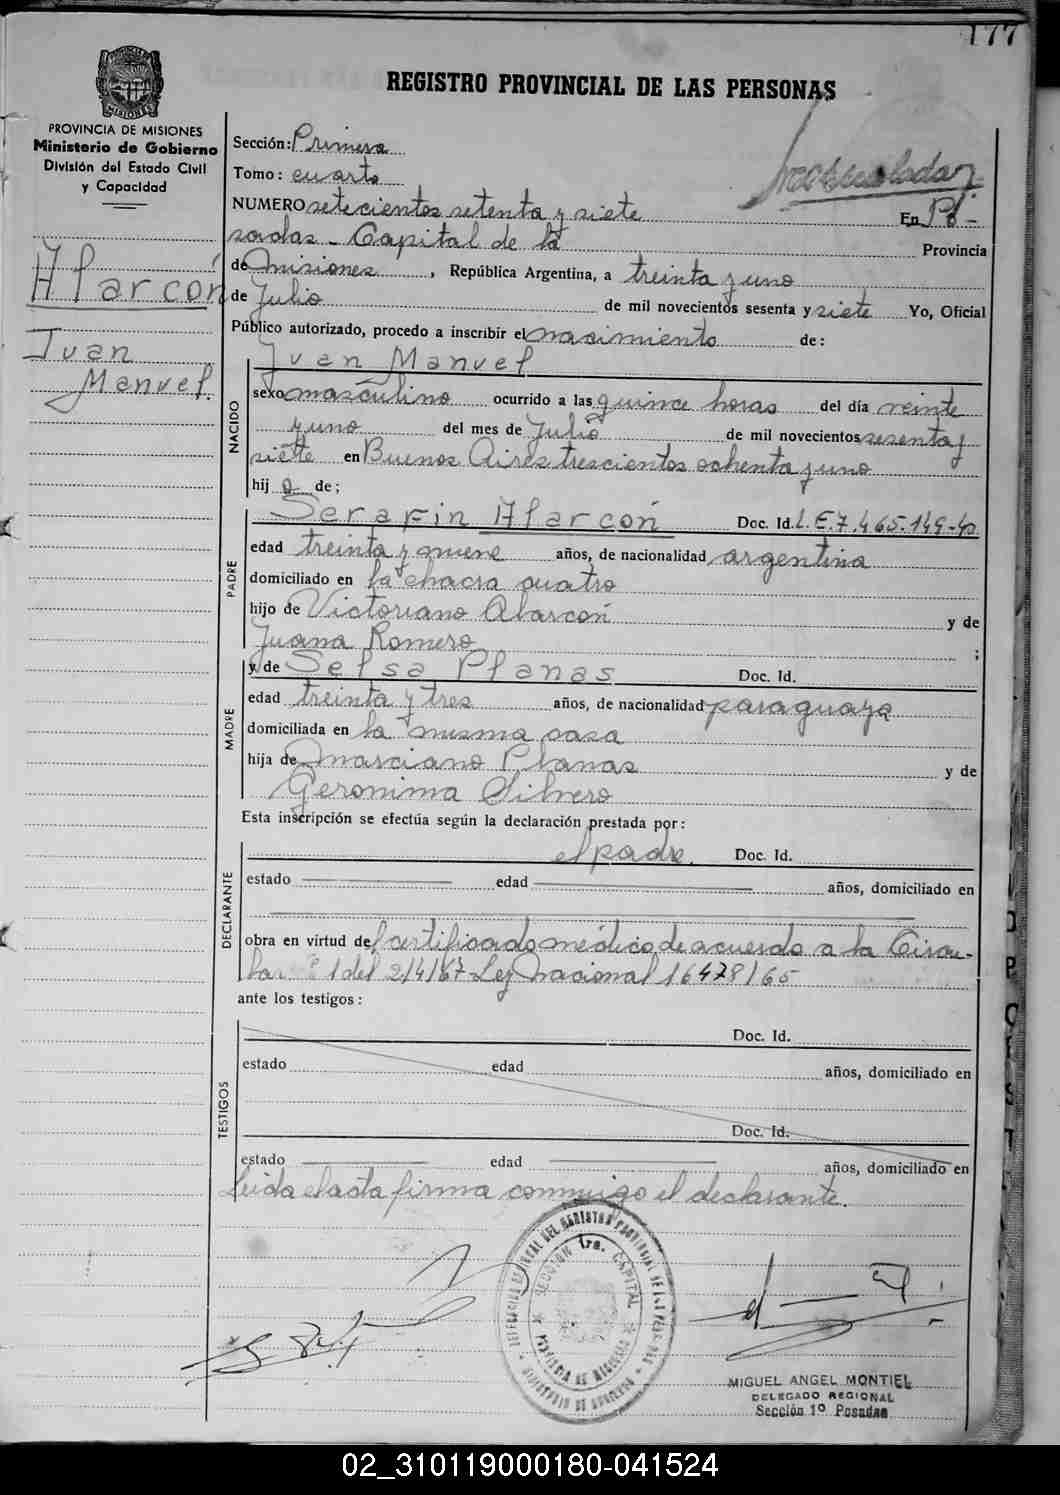 177
REGISTRO PROVINCIAL DE LAS PERSONAS
PROVINCIA DE MISIONES
Ministerio de Gobierno
División del Estado Civil
y Capacidad
Alarcón
Juan
Manuel
Sección: Primera
Tomo: cuarto
NUMERO setecientos setenta y siete En Po-
sadas - Capital de la Provincia
de Misiones, República Argentina, a treinta y uno
de Julio de mil novecientos sesenta y siete Yo, Oficial
Público autorizado, procedo a inscribir el nacimiento de:
NACIDO
Juan Manuel
sexo masculino ocurrido a las quince horas del día veinte
y uno del mes de Julio de mil novecientos sesenta y
siete en Buenos Aires trescientos ochenta y uno
hij o de;
PADRE
Serafin Alarcón Doc. Id. L.E.7.465.149-
edad treinta y nueve años, de nacionalidad argentina
domiciliado en la chacra cuatro
hijo de Victoriano Alarcón y de
Juana Romero ;
MADRE
y de Selsa Planas Doc. Id.
edad treinta y tres años, de nacionalidad paraguaya
domiciliada en la misma casa
hija de Marciano Planas y de
Geronima Silvero
Esta inscripción se efectúa según la declaración prestada por:
DECLARANTE
el padre. Doc. Id.
estado edad años, domiciliado en
obra en virtud del certificado médico de acuerdo a la Circu-
lar 1 del 2/4/67 Ley Nacional 16478/65
ante los testigos:
TESTIGOS
Doc. Id.
estado edad años, domiciliado en
Doc. Id.
estado edad años, domiciliado en
Leída el acta firma conmigo el declarante.
SECCION 1ra. CAPITAL
PROVINCIA DE MISIONES
MIGUEL ANGEL MONTIEL
DELEGADO REGIONAL
Sección 1º Posadas
02_310119000180-041524